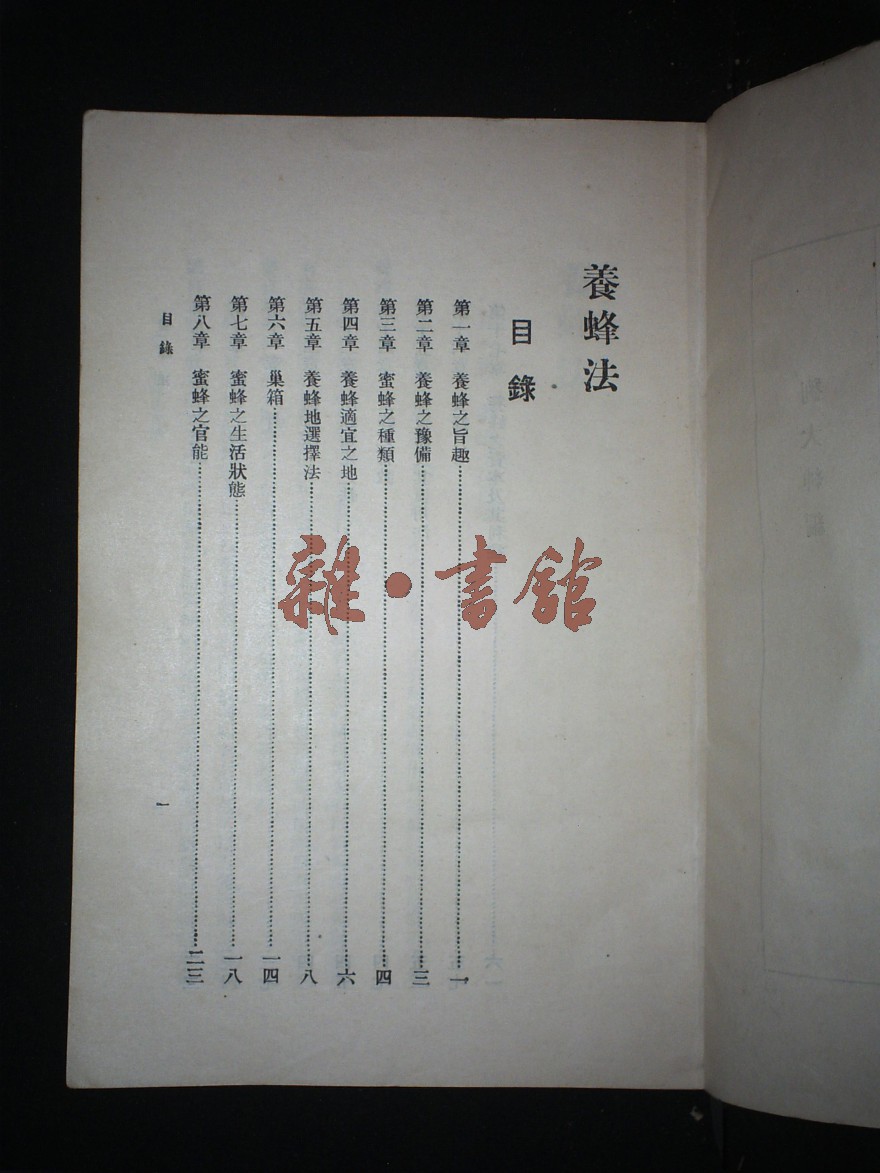 養蜂法
目錄
第一章 養蜂之旨趣……一
第二章 養蜂之豫備……三
第三章 蜜蜂之種類……四
第四章 養蜂適宜之地……六
第五章 養蜂地選擇法……八
第六章 巢箱……一四
第七章 蜜蜂之生活狀態……一八
第八章 蜜蜂之官能……二三
目錄
一
雜·書館